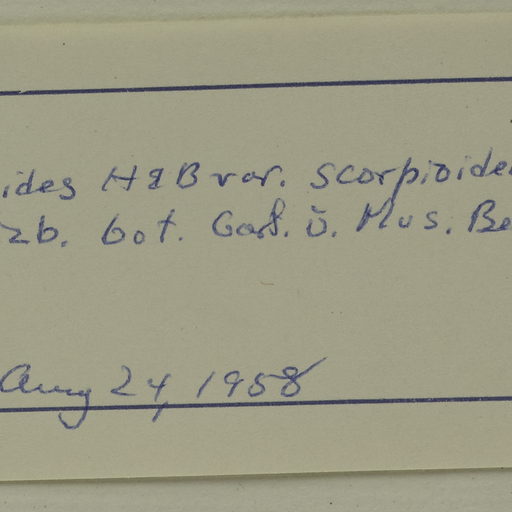 ides H&B var. scorpioide
zb. bot. Gart. ü. Mus. Be
Aug 24, 1958